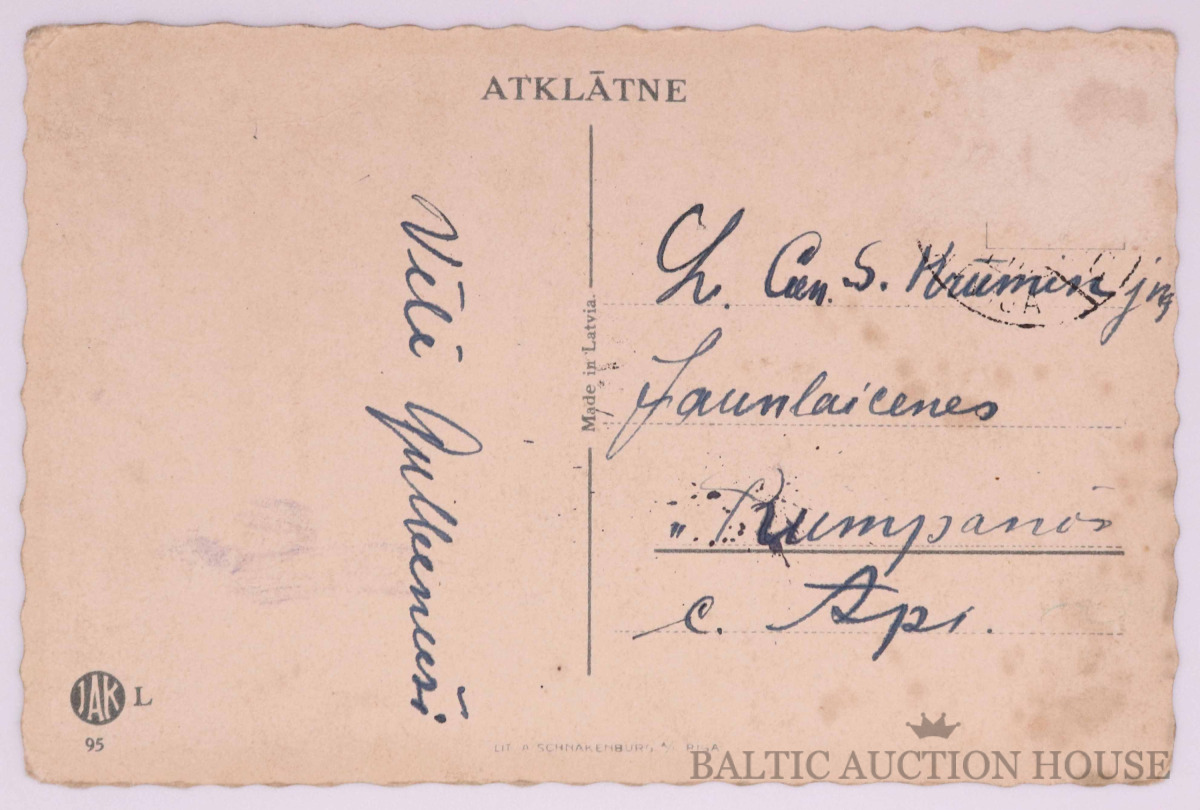 ATKLĀTNE
Vēlē Gulbenieši
Made in Latvia.
L. Cien. S. Krūmin jng
Jaunlaicenes
"Rumpanos
c. Api.
JAK L
95
LIT. A. SCHNAKENBURG, A/S RIGA
BALTIC AUCTION HOUSE